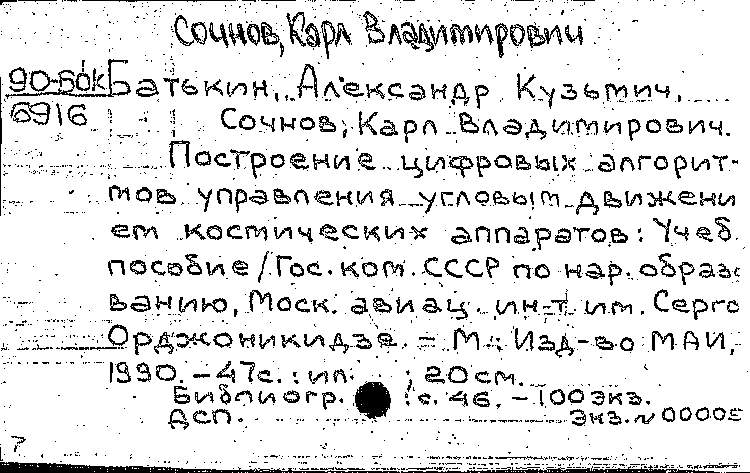 Сочнов, Карл Владимирович
90-50к Батькин, Александр Кузьмич,
6916 Сочнов, Карл Владимирович.
Построение цифровых алгорит-
мов управления угловым движени
ем космических аппаратов: Учеб.
пособие / Гос. ком. СССР по нар. образо
ванию, Моск. авиац. ин-т им. Серго
Орджоникидзе. - М.: Изд-во МАИ,
1990. - 47с. : ил. ; 20см.
Библиогр. : с. 46. - 100 экз.
ДСП. Экз. № 00005